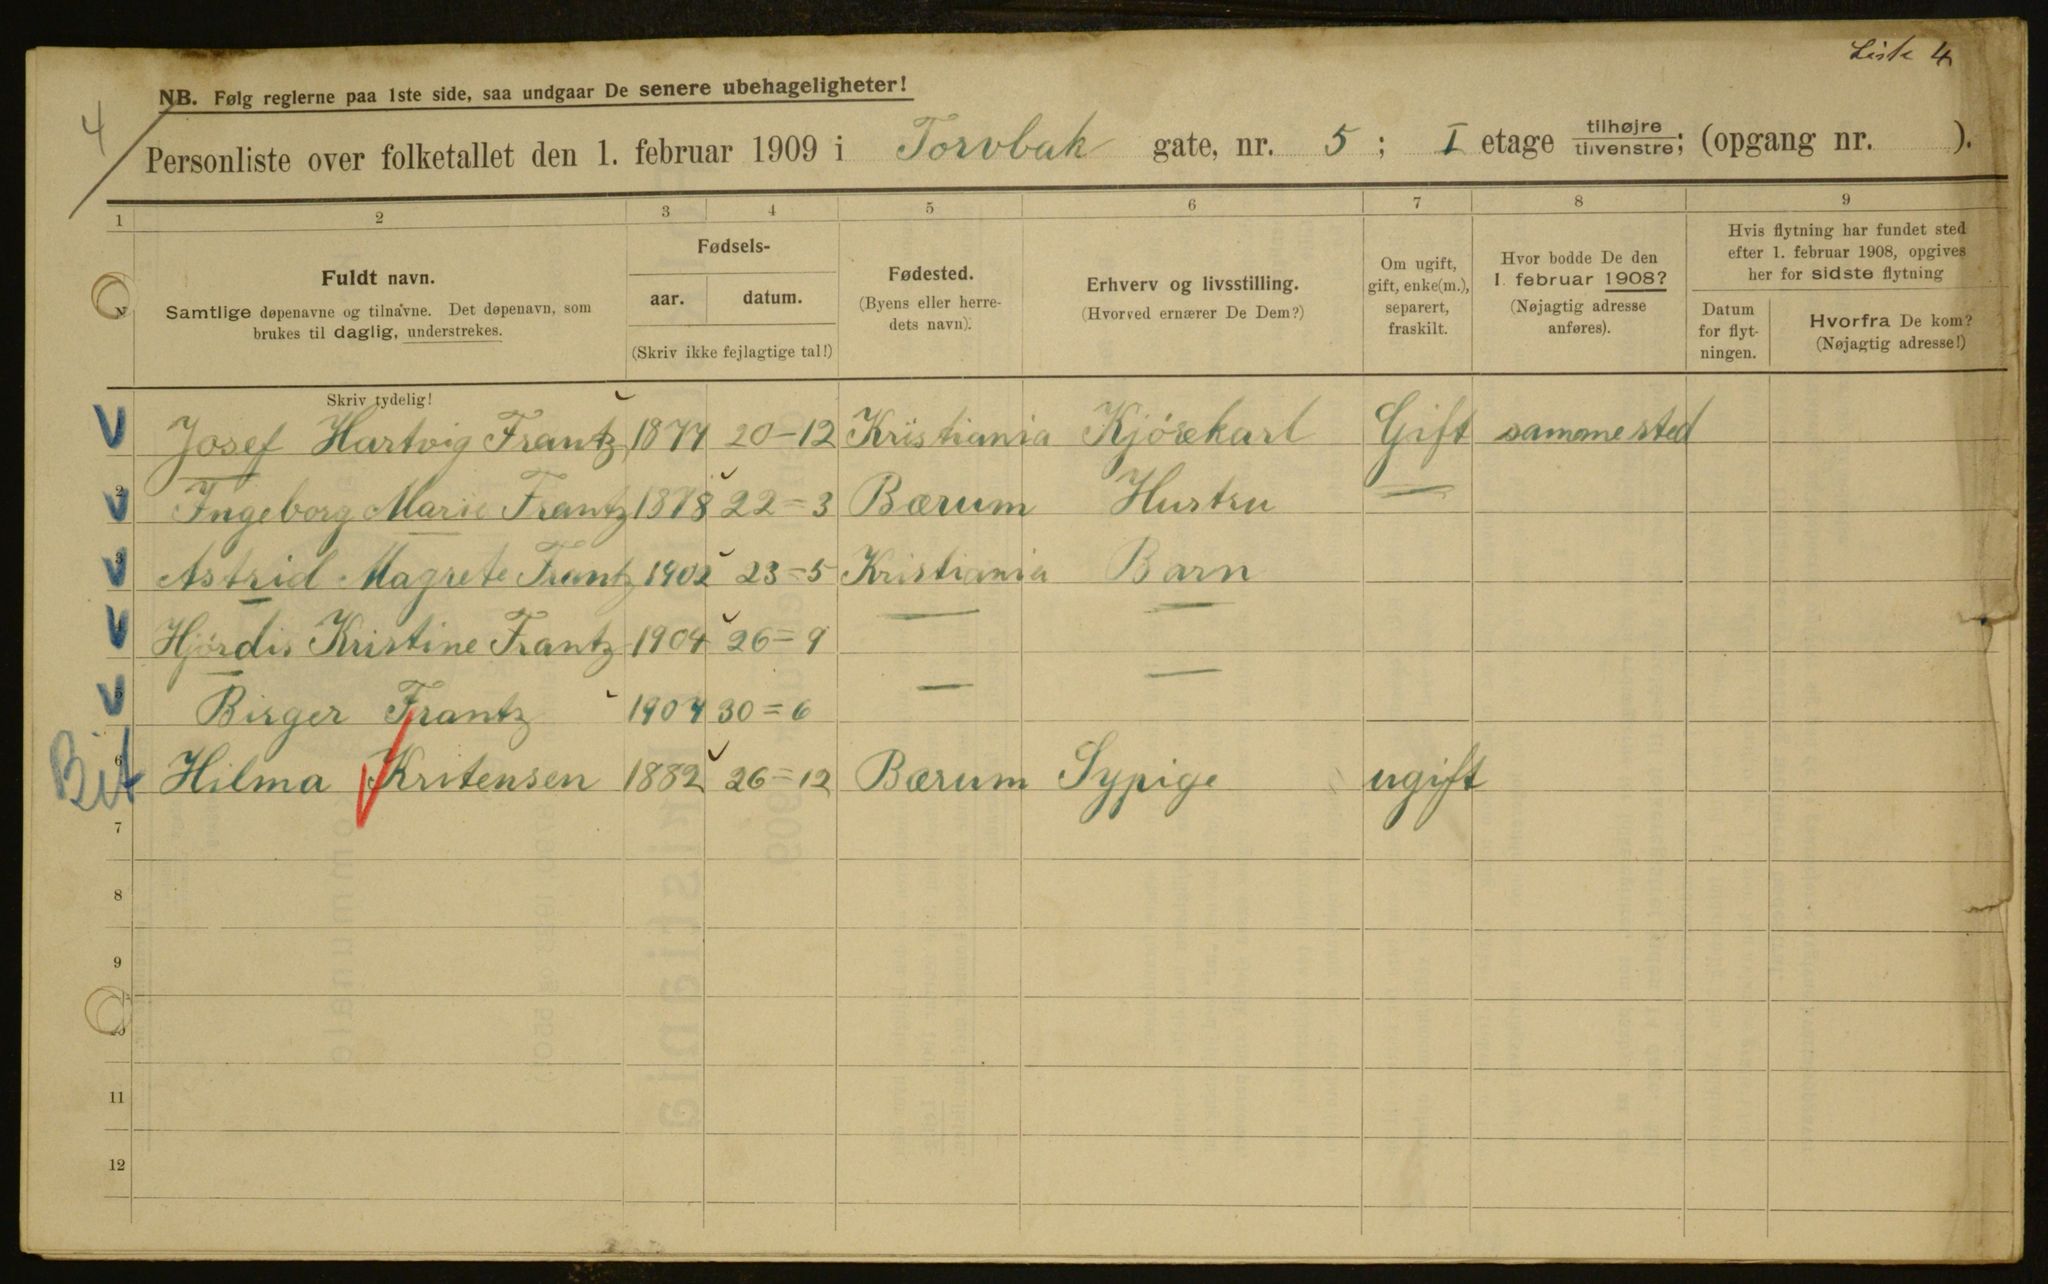 Liste 4
4
NB. Følg reglerne paa 1ste side, saa undgaar De senere ubehageligheter!
Personliste over folketallet den 1. februar 1909 i Torvbak gate, nr. 5; I etage tilhøjre tilvenstre; (opgang nr. ).
1 2 3 4 5 6 7 8 9
Fuldt navn.
Samtlige døpenavne og tilnavne. Det døpenavn, som
brukes til daglig, understrekes.
Fødsels-
aar. datum.
(Skriv ikke fejlagtige tal!)
Fødested.
(Byens eller herre-
dets navn).
Erhverv og livsstilling.
(Hvorved ernærer De Dem?)
Om ugift,
gift, enke(m.),
separert,
fraskilt.
Hvor bodde De den
1. februar 1908?
(Nøjagtig adresse
anføres).
Hvis flytning har fundet sted
efter 1. februar 1908, opgives
her for sidste flytning
Datum
for flyt-
ningen.
Hvorfra De kom?
(Nøjagtig adresse!)
Skriv tydelig!
V Josef Hartvig Frantz 1877 20-12 Kristiania Kjórekarl Gift sammested
V 2 Ingeborg Marie Frantz 1878 22=3 Bærum Hustru —
V 3 Astrid Magrete Frantz 1902 23=5 Kristiania Barn
V Hjórdis Kristine Frantz 1904 26=9 — —
V 5 Birger Frantz 1907 30=6 — —
Bit 6 Hilma Kritensen 1882 26=12 Bærum Sypige ugift
7
8
9
10
11
12